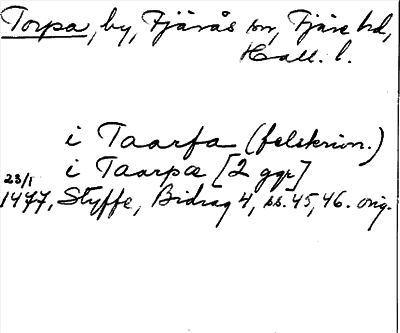 Torpa, by, Fjärås sn, Fjäre hd,
Hall. l.
i Taarfa (felskrivn.)
i Taarpa [2 ggr]
23/1
1477, Styffe, Bidrag 4, ss. 45, 46. orig.